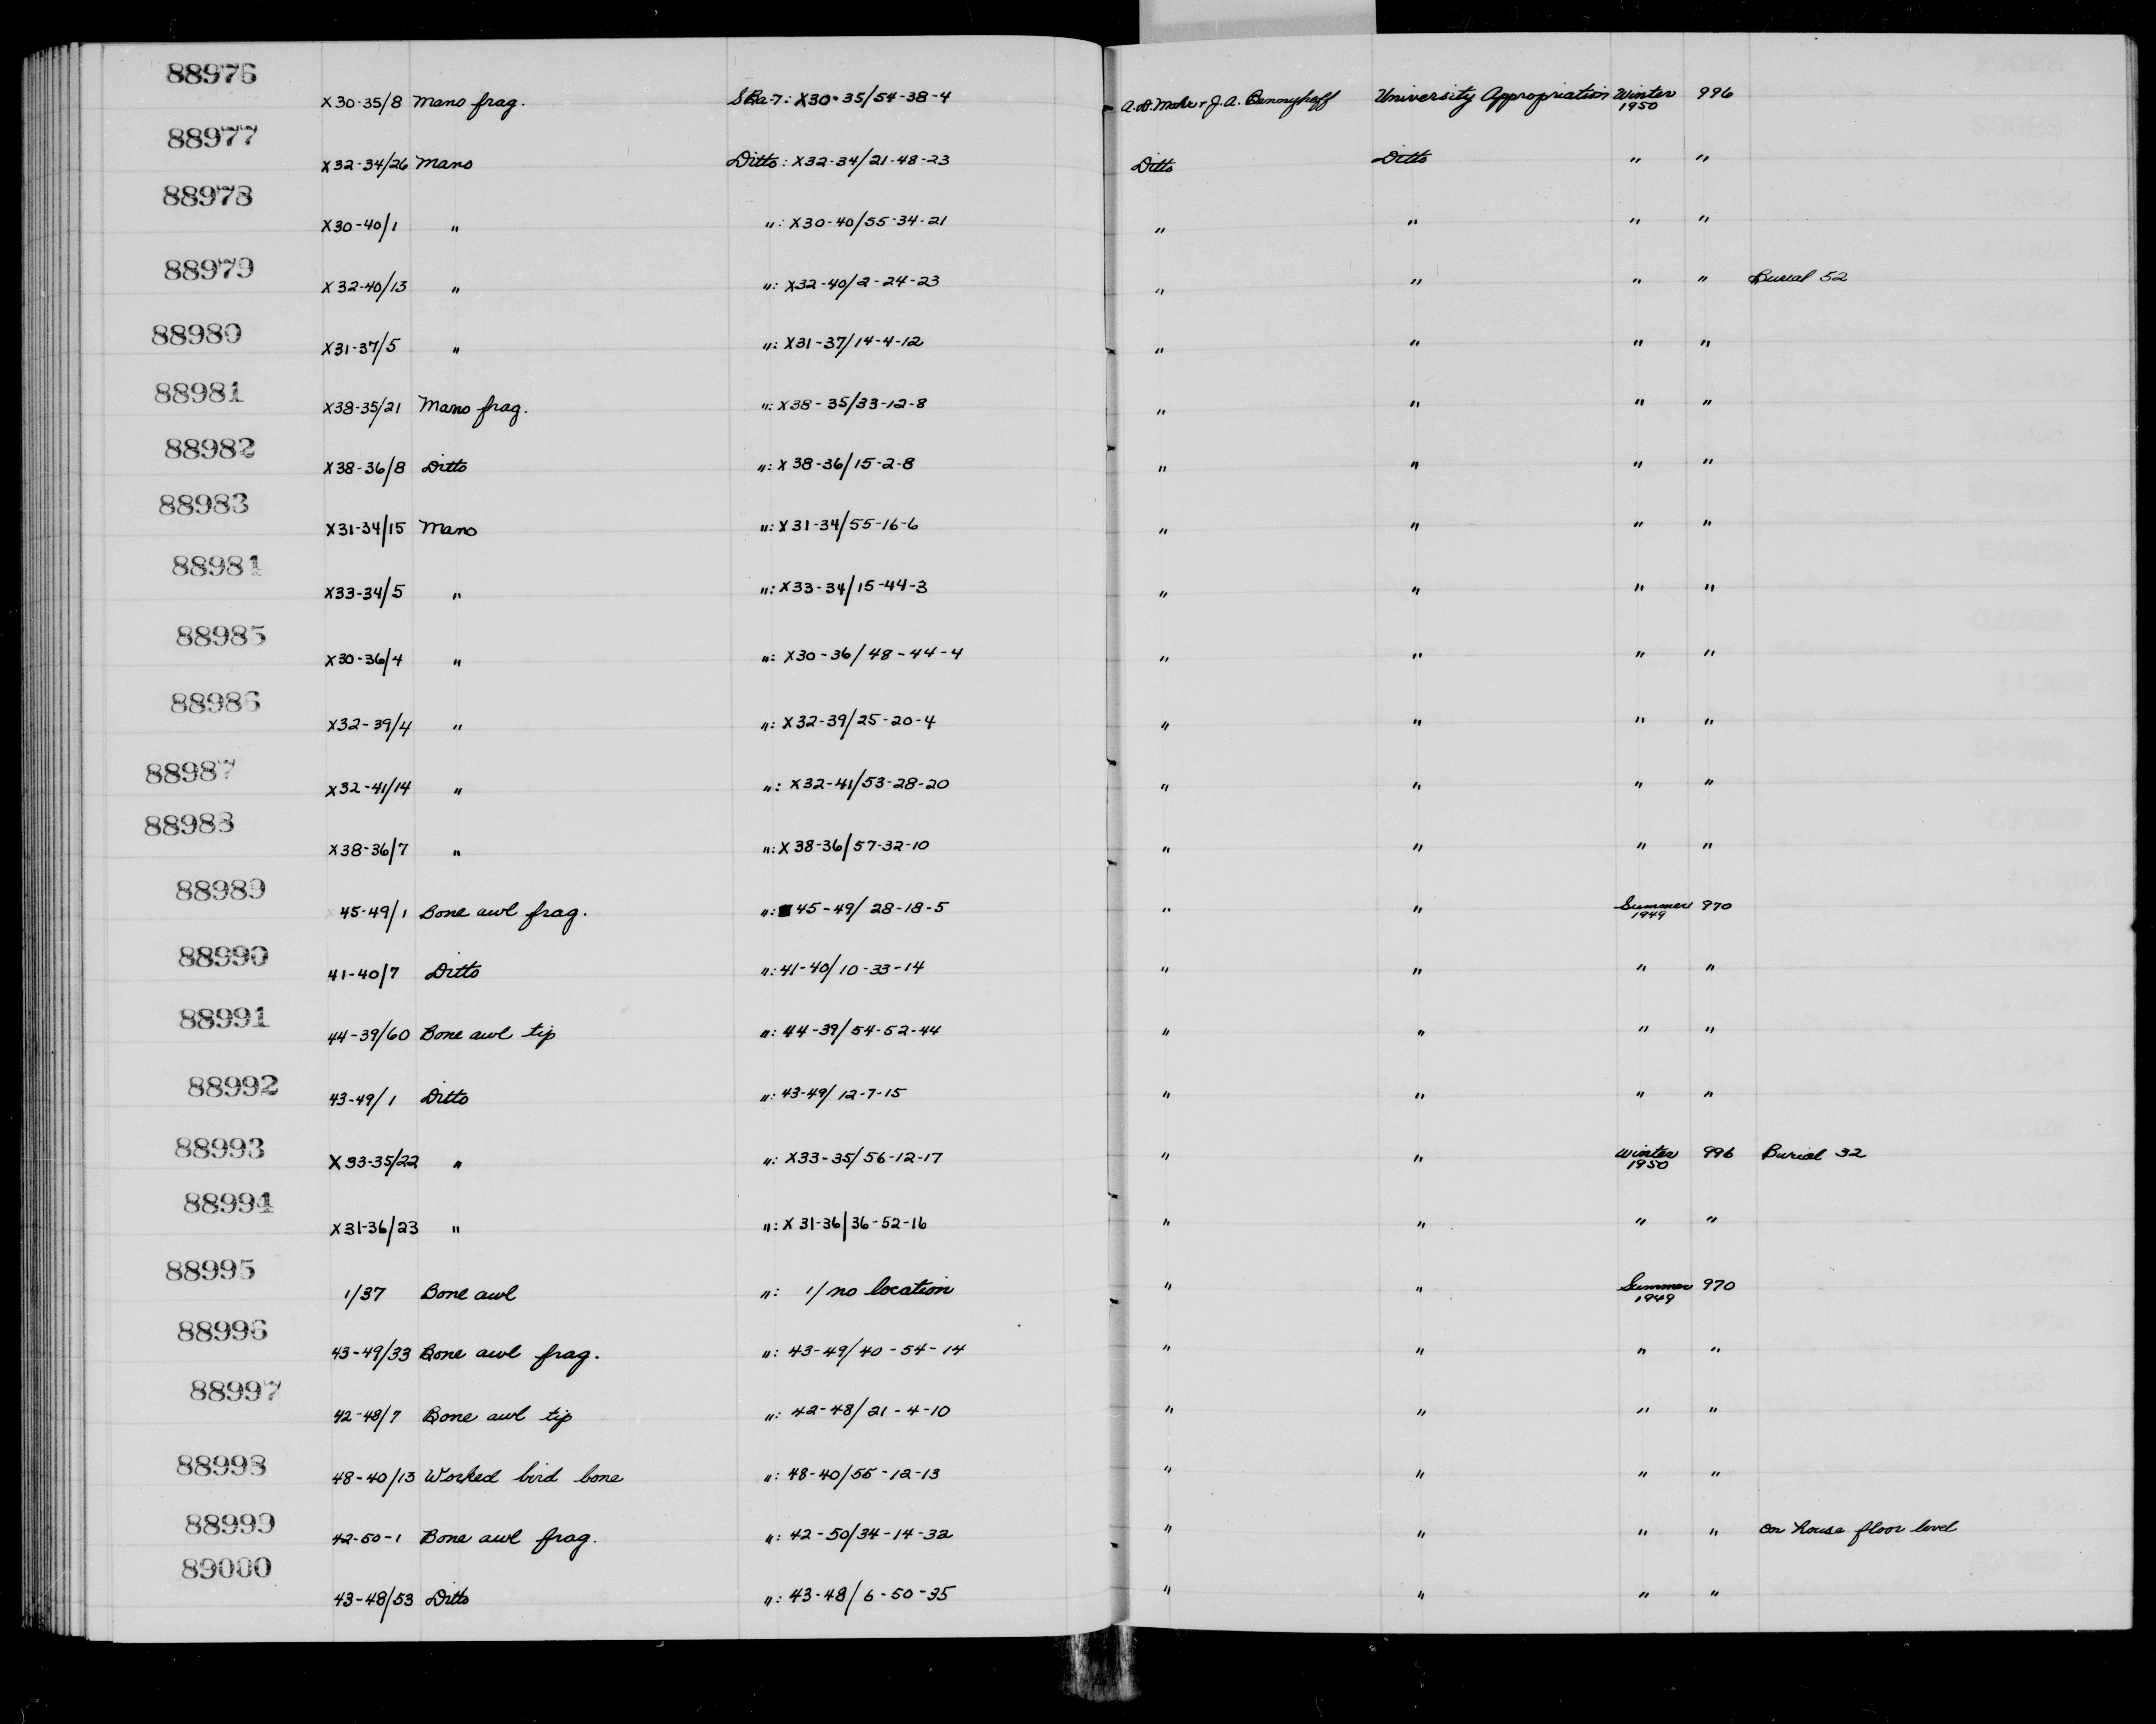 88976 X30-35/8 Mano frag. SBa-7: X30-35/54-38-4 A.D. Mohr + J.A. Bennyhoff University Appropriation Winter 1950 996
88977 X32-34/26 Mano Ditto: X32-34/21-48-23 Ditto Ditto " "
88978 X30-40/1 " ": X30-40/55-34-21 " " " "
88979 X32-40/13 " ": X32-40/2-24-23 " " " " Burial 52
88980 X31-37/5 " ": X31-37/14-4-12 " " " "
88981 X38-35/21 Mano frag. ": X38-35/33-12-8 " " " "
88982 X38-36/8 Ditto ": X38-36/15-2-8 " " " "
88983 X31-34/15 Mano ": X31-34/55-16-6 " " " "
88984 X33-34/5 " ": X33-34/15-44-3 " " " "
88985 X30-36/4 " ": X30-36/48-44-4 " " " "
88986 X32-39/4 " ": X32-39/25-20-4 " " " "
88987 X32-41/14 " ": X32-41/53-28-20 " " " "
88988 X38-36/7 " ": X38-36/57-32-10 " " " "
88989 45-49/1 Bone awl frag. ": 45-49/28-18-5 " " Summer 1949 970
88990 41-40/7 Ditto ": 41-40/10-33-14 " " " "
88991 44-39/60 Bone awl tip ": 44-39/54-52-44 " " " "
88992 43-49/1 Ditto ": 43-49/12-7-15 " " " "
88993 X33-35/22 " ": X33-35/56-12-17 " " Winter 1950 996 Burial 32
88994 X31-36/23 " ": X31-36/36-52-16 " " " "
88995 1/37 Bone awl ": 1/no location " " Summer 1949 970
88996 43-49/33 Bone awl frag. ": 43-49/40-54-14 " " " "
88997 42-48/7 Bone awl tip ": 42-48/21-4-10 " " " "
88998 48-40/13 Worked bird bone ": 48-40/55-12-13 " " " "
88999 42-50-1 Bone awl frag. ": 42-50/34-14-32 " " " " on house floor level
89000 43-48/53 Ditto ": 43-48/6-50-35 " " " "